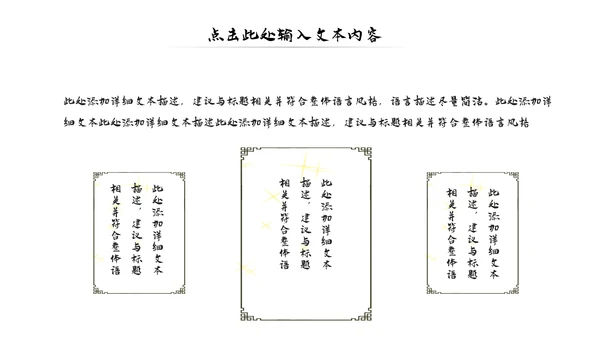 点击此处输入文本内容
此处添加详细文本描述，建议与标题相关并符合整体语言风格，语言描述尽量简洁。此处添加详
细文本此处添加详细文本描述此处添加详细文本描述，建议与标题相关并符合整体语言风格
此处添加详细文本
描述，建议与标题
相关并符合整体语
此处添加详细文本
描述，建议与标题
相关并符合整体语
此处添加详细文本
描述，建议与标题
相关并符合整体语